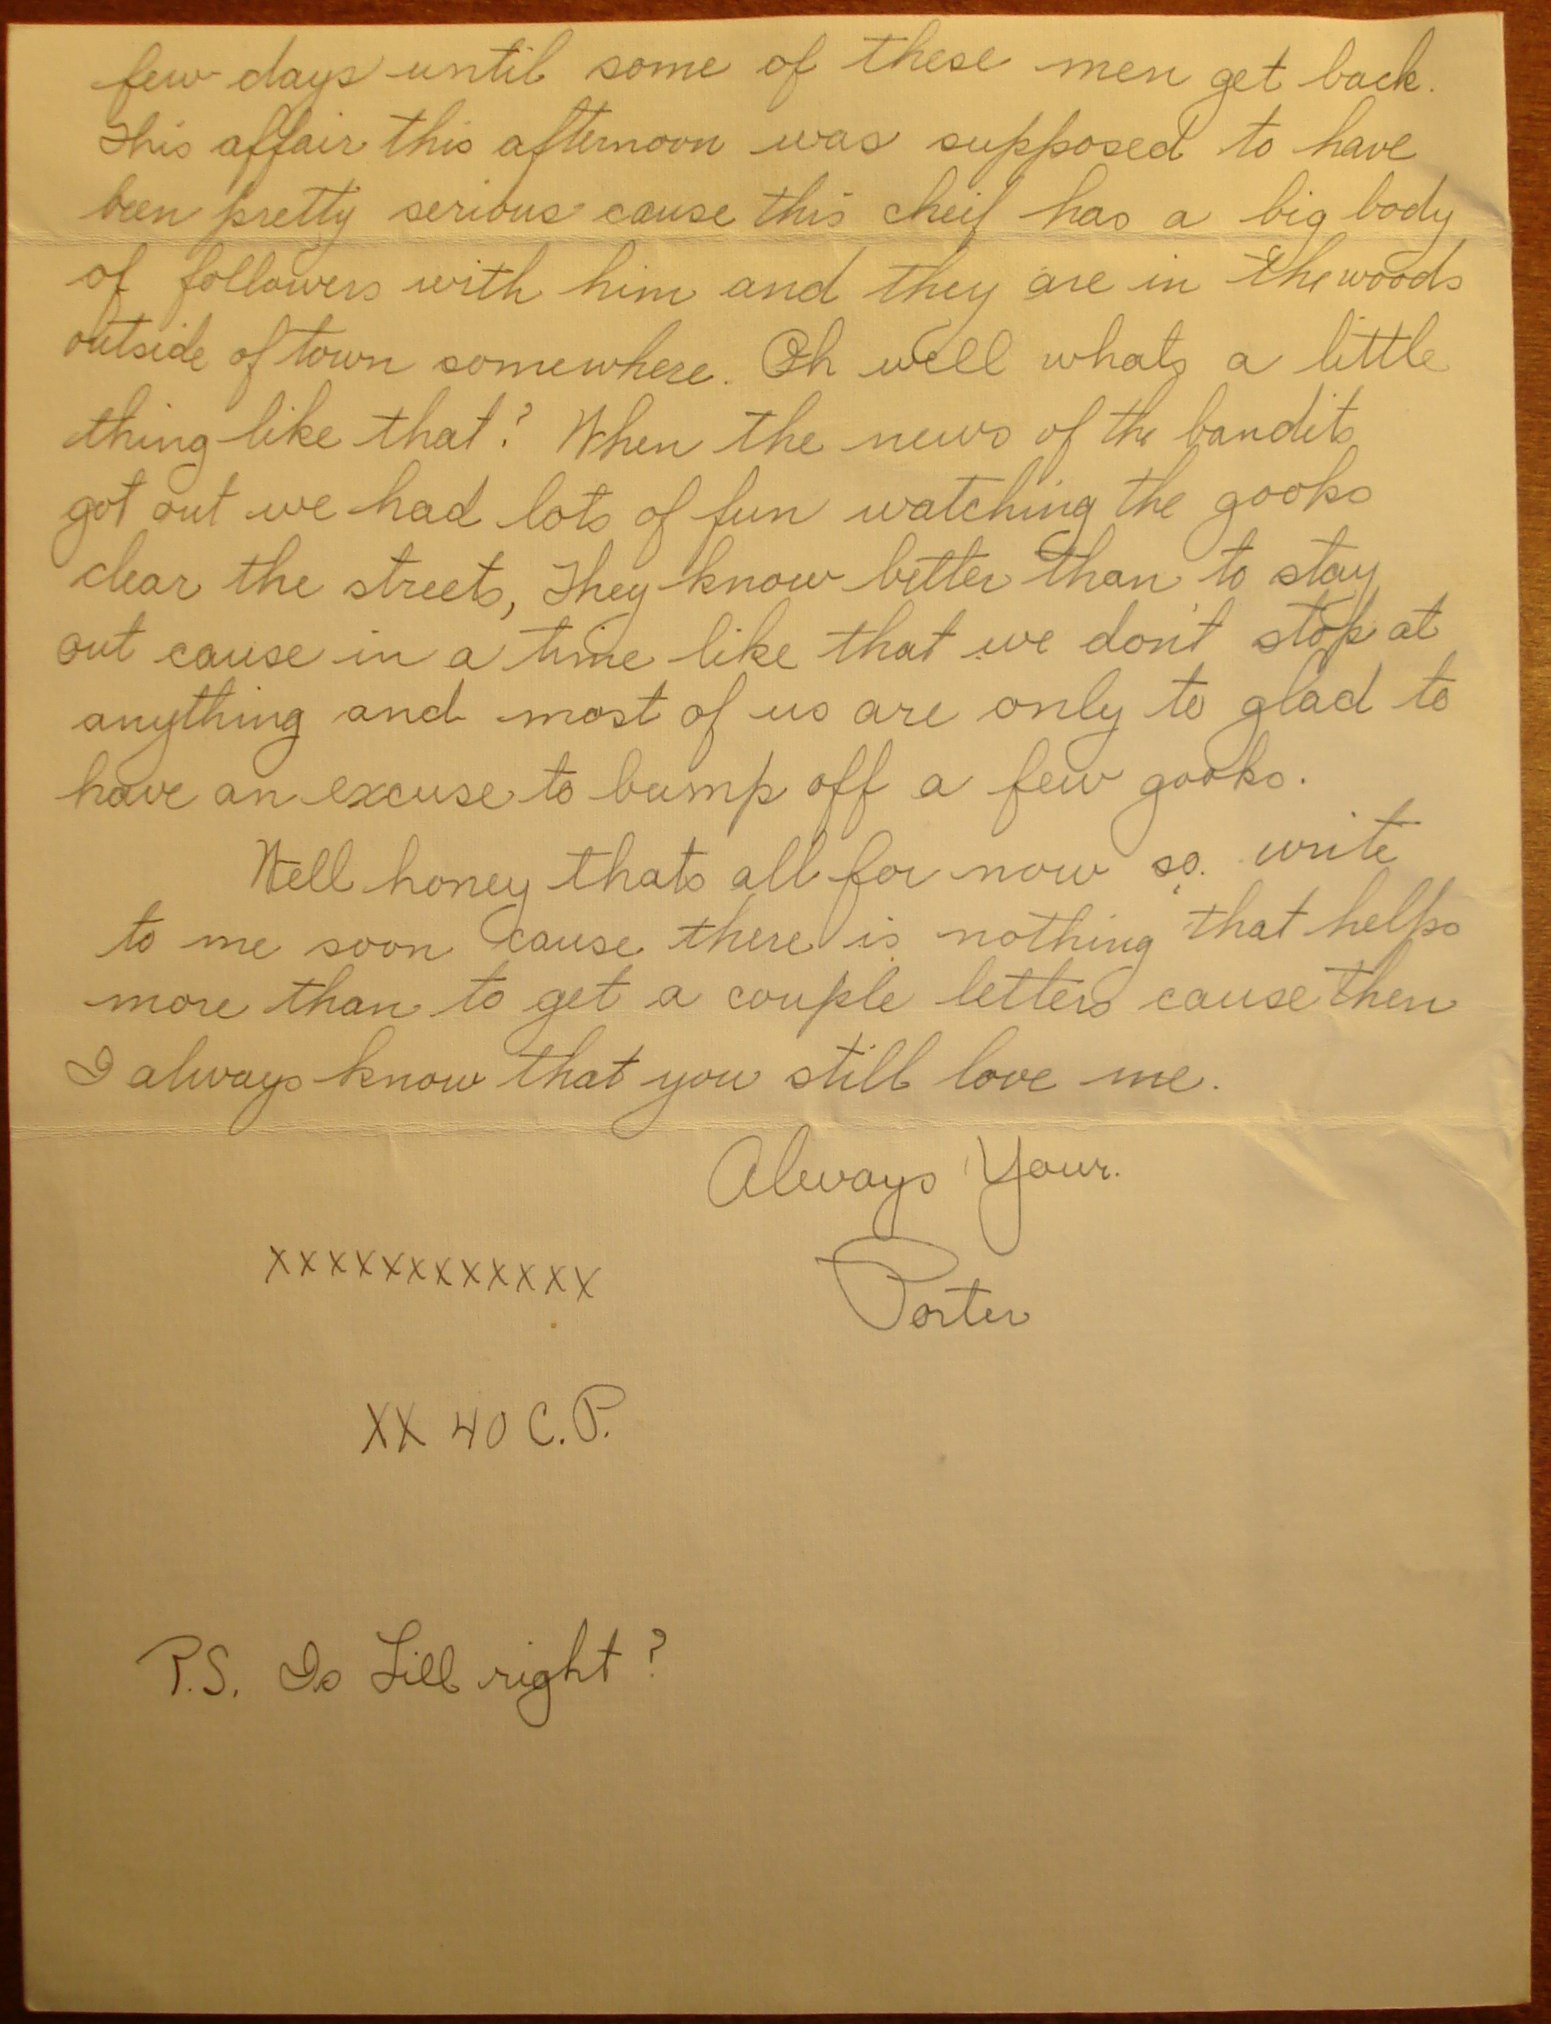 few days until some of these men get back.
This affair this afternoon was supposed to have
been pretty serious cause this cheif has a big body
of followers with him and they are in the woods
outside of town somewhere. Oh well whats a little
thing like that? When the news of the bandits
got out we had lots of fun watching the gooks
clear the streets, They know better than to stay
out cause in a time like that we don't stop at
anything and most of us are only to glad to
have an excuse to bump off a few gooks.
Well honey thats all for now so. write
to me soon cause there is nothing that helps
more than to get a couple letters cause then
I always know that you still love me.
Always Your.
xxxxxxxxxxxx
Porter
XX 40 C.P.
P.S. Is Lill right?